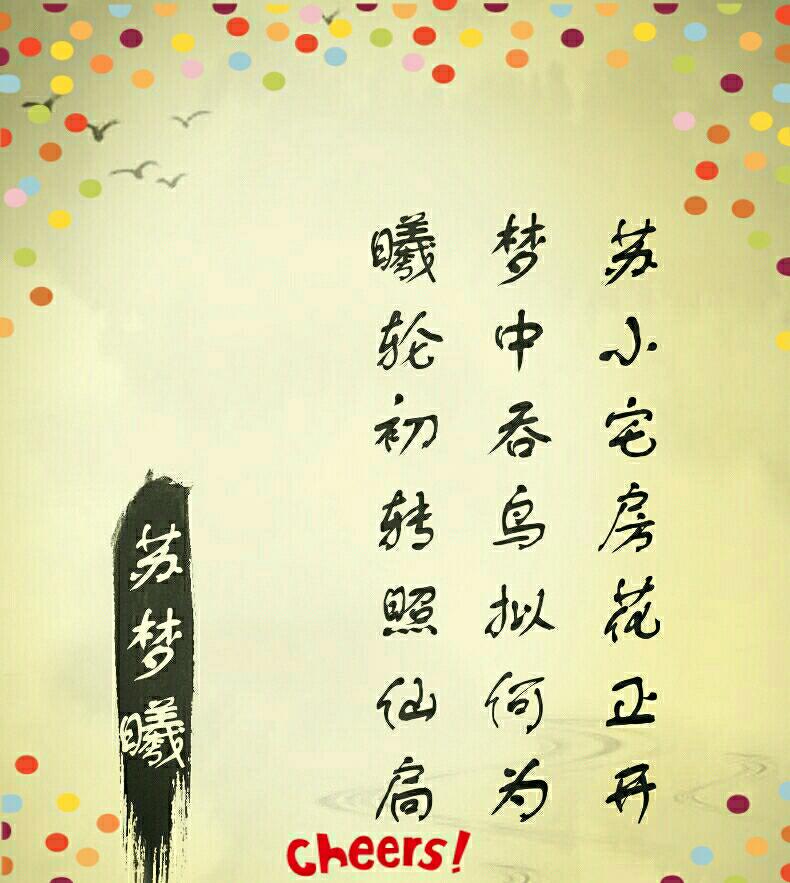 苏小宅房花正开
梦中吞鸟拟何为
曦轮初转照仙扃
苏梦曦
cheers!